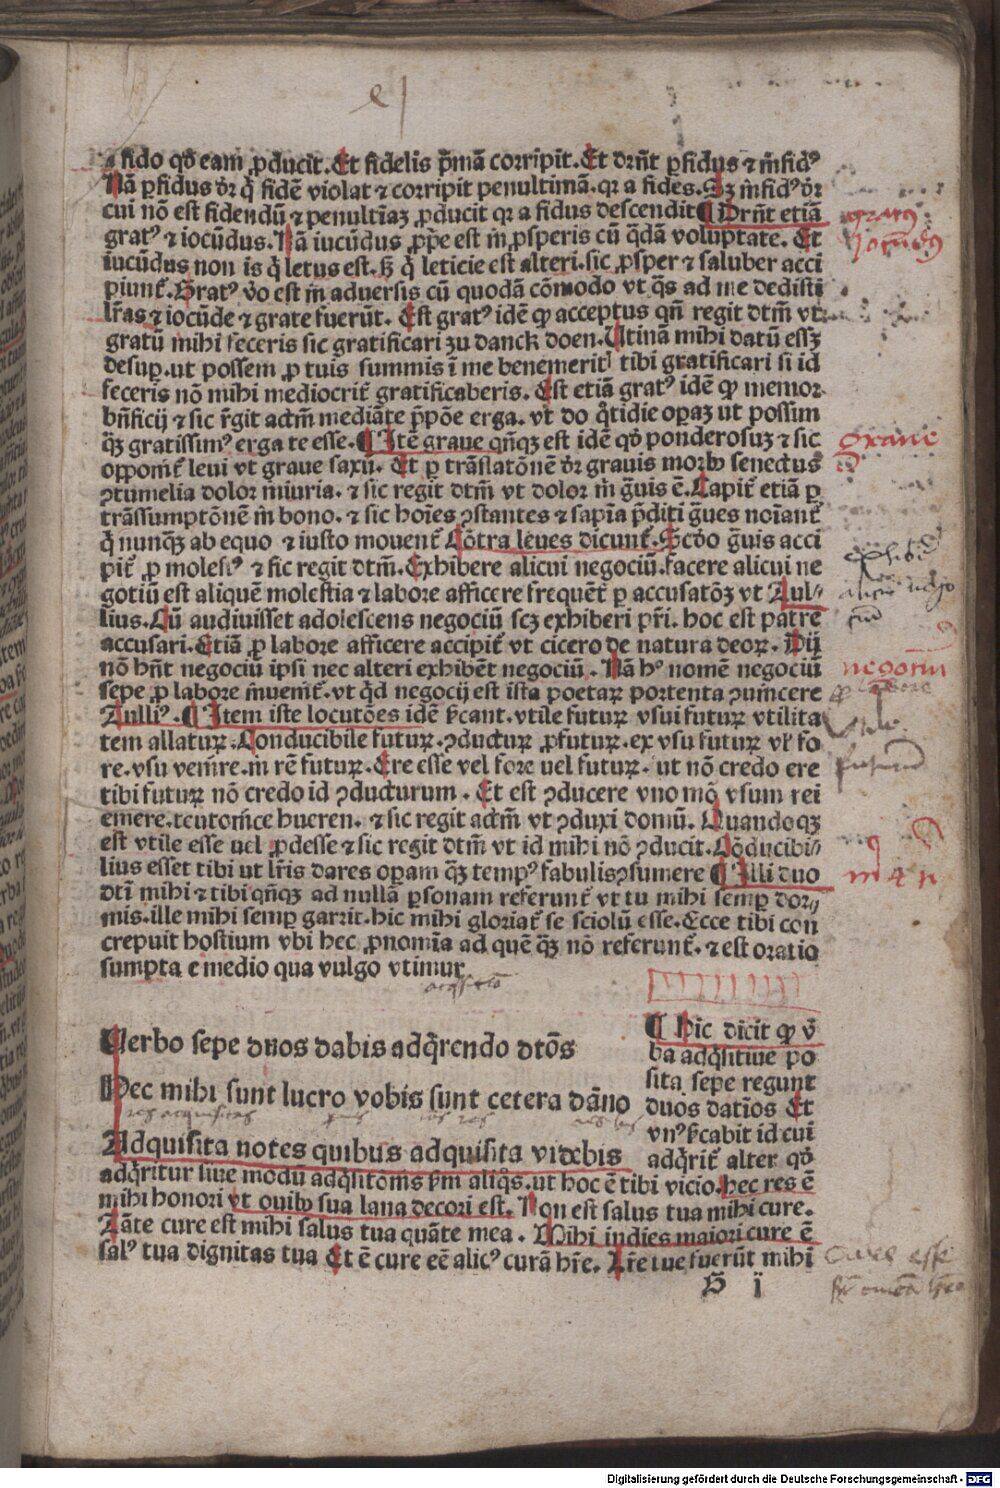 a fido qđ eam ꝓducit. Et fidelis p̄mā corripit. Et dr̄nt ꝑfidus ⁊ īfidꝰ
Nā ꝑfidus dr̄ q̄ fidē violat ⁊ corripit penultimā. qꝛ a fides. Sꝫ īfidꝰ dr̄
cui nō est fidendū ⁊ penultīaꝫ ꝓducit qꝛ a fidus descendit ¶ Drn̄t etiā
gratꝰ ⁊ iocūdus. Nā iucūdus ꝓpe est in ꝓsperis cū q̄dā voluptate. Et
iucūdus non is q̄ letus est. sꝫ q̄ leticie est alteri. sic ꝓsper ⁊ saluber acci
piunt̄. Gratꝰ v̄o est in aduersis cū quodā cōmodo vt q̄s ad me dedisti
lr̄as ⁊ iocūde ⁊ grate fuerūt. Est gratꝰ idē ꝙ acceptus qn̄ regit dtm̄ vt
gratū mihi feceris sic gratificari zu danck doen. Utinā mihi datū essꝫ
desuꝑ. ut possem ꝓ tuis summis ī me benemerit̄ tibi gratificari si id
feceris nō mihi mediocrit̄ gratificaberis. Est etiā gratꝰ idē ꝙ memor
bn̄ficij ⁊ sic r̄git actm̄ mediāte p̄pōe erga. vt do q̄tidie oꝑaꝫ ut possim
q̄ꝫ gratissimꝰ erga te esse. ¶ Itē graue qn̄qꝫ est idē qđ ponderosuꝫ ⁊ sic
opponit̄ leui vt graue saxū. Et ꝑ trāslatōnē dr̄ grauis morbꝰ senectus
ꝯtumelia dolor iniuria. ⁊ sic regit dtm̄ vt dolor m̄ ḡuis ē. Capit̄ etiā ꝑ
trāssumptōnē in bono. ⁊ sic hoīes ꝯstantes ⁊ sapīa p̄diti ḡues noīant̄
q̄ nunq̄ꝫ ab equo ⁊ iusto mouent̄ Cōtra leues dicunt̄. Scđo ḡuis acci
pit̄ ꝓ molestꝰ ⁊ sic regit dtm̄. Exhibere alicui negociū. facere alicui ne
gotiū est aliquē molestia ⁊ labore afficere frequēt̄ ꝑ accusatōꝫ vt Tul⸗
lius. Cū audiuisset adolescens negociū scꝫ exhiberi pr̄i. hoc est patrē
accusari. Etiā ꝓ labore afficere accipit̄ vt cicero de natura deoꝝ. Dij
nō hn̄t negociū ipsi nec alteri exhibēt negociū. Nā hꝰ nomē negociū
sepe ꝓ labore īuenit̄. vt q̄d negocij est ista poetaꝝ portenta ꝯuincere
Tulliꝰ. ¶ Item iste locutōes idē sīcant. vtile futuꝝ vsui futuꝝ vtilita
tem allatuꝝ. Conducibile futuꝝ. ꝯductuꝝ ꝓfutuꝝ. ex vsu futuꝝ vl̄ fo
re. vsu venīre. in rē futuꝝ. Ere esse vel fore uel futuꝝ. ut nō credo ere
tibi futuꝝ nō credo id ꝯducturum. Et est ꝯducere vno mō vsum rei
emere. teutonice hueren. ⁊ sic regit actm̄ vt ꝯduxi domū. Quandoqꝫ
est vtile esse uel ꝓdesse ⁊ sic regit dtm̄ vt id mihi nō ꝯducit. Cōducibi⸗
lius esset tibi ut lr̄is dares oꝑam q̄ꝫ tempꝰ fabulis ꝯsumere ¶ Illi duo
dtī mihi ⁊ tibi qn̄qꝫ ad nullā ꝑsonam referunt̄ vt tu mihi semꝑ dor⸗
mis. ille mihi semꝑ garrit. hic mihi gloriat̄ se sciolū esse. Ecce tibi con
crepuit hostium vbi hec ꝓnomīa ad quē q̄ꝫ nō referunt̄. ⁊ est oratio
sumpta e medio qua vulgo vtimur
Verbo sepe duos dabis adq̄rendo dtōs
Hec mihi sunt lucro vobis sunt cetera dāno
Adquisita notes quibus adquisita videbis
¶ Hic dicit ꝙ v̄
ba adq̄sitiue po
sita sepe regunt
duos datīos Et
vnꝰ sīcabit id cui
adq̄rit̄ alter qđ
adq̄ritur siue modū adq̄sitōnis sm̄ aliq̄s. ut hoc ē tibi vicio. hec res ē
mihi honori vt ouibꝰ sua lana decori est. Non est salus tua mihi cure.
Tāte cure est mihi salus tua quāte mea. Mihi indies maiori cure ē
salꝰ tua dignitas tua Et ē cure eē alicꝰ curā hr̄e. Lr̄e tue fuerūt mihi
G ij
gratꝰ
graue
negotiū
Cure esse
Digitalisierung gefördert durch die Deutsche Forschungsgemeinschaft - DFG